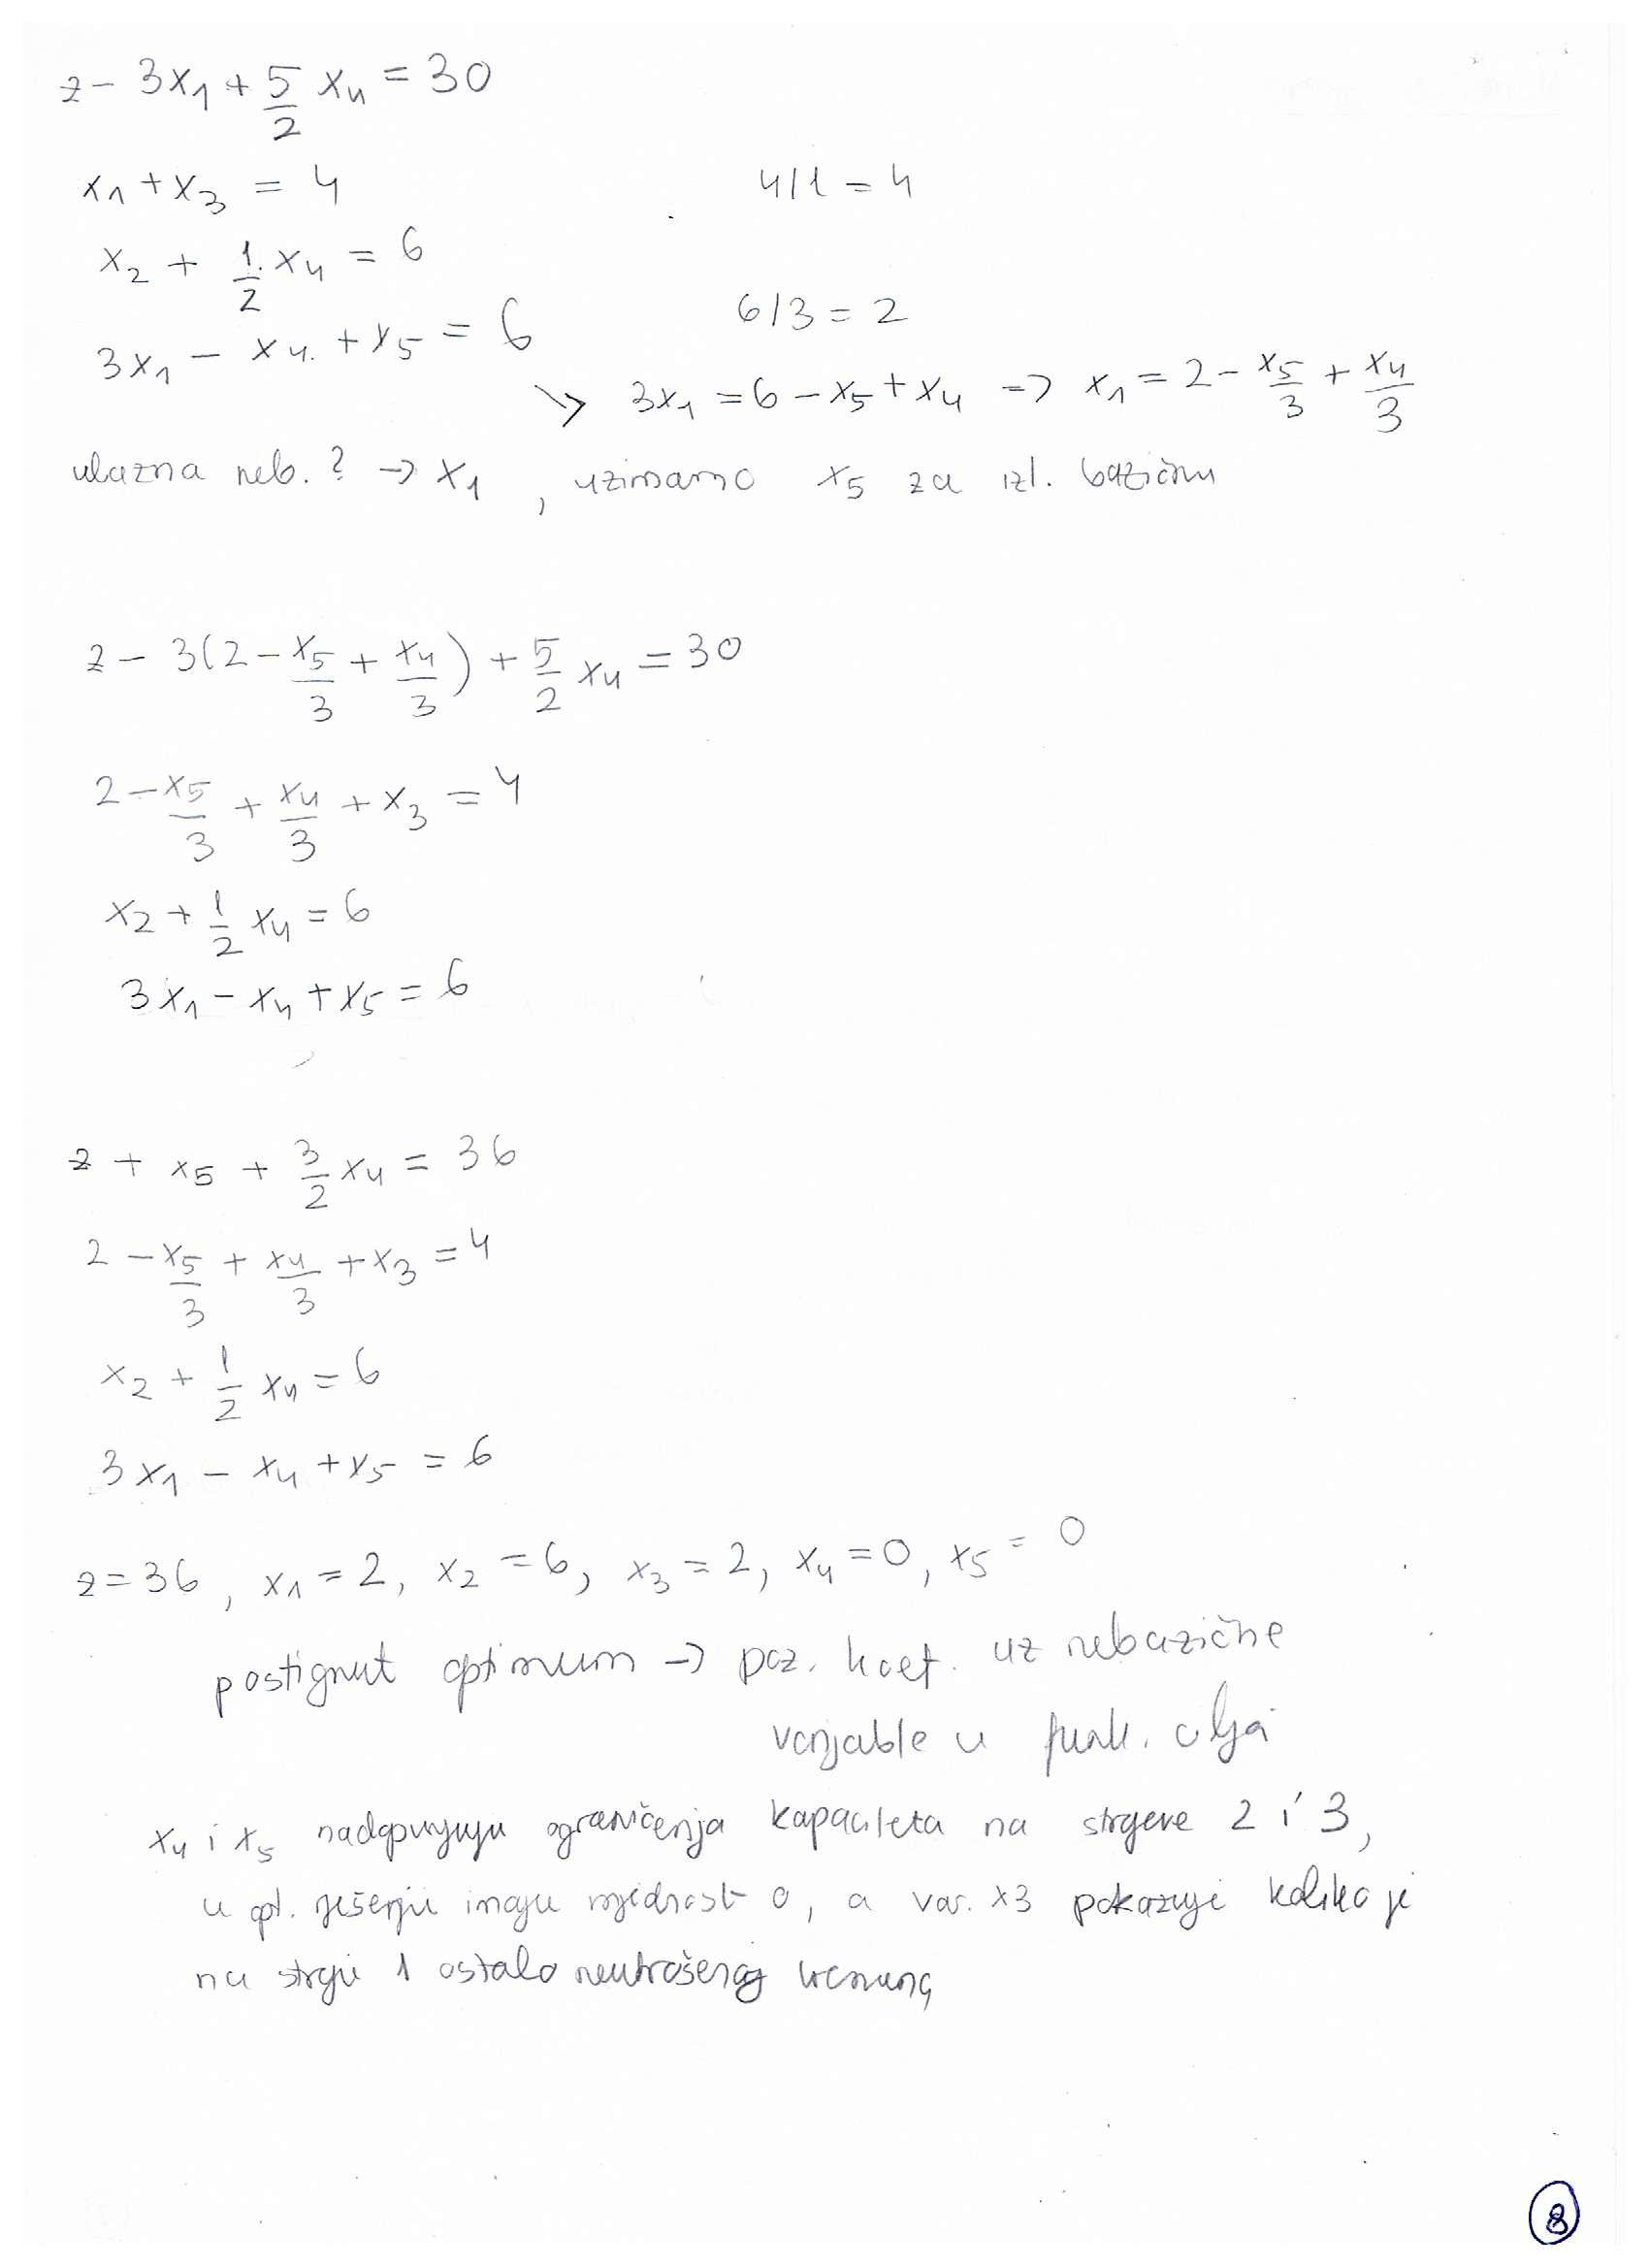 z - 3x₁ + 5/2 x₄ = 30
x₁ + x₃ = 4    4/1 = 4
x₂ + 1/2 x₄ = 6
3x₁ - x₄ + x₅ = 6    6/3 = 2
↘ 3x₁ = 6 - x₅ + x₄ => x₁ = 2 - x₅/3 + x₄/3
ulazna neb. ? → x₁ , uzimamo x₅ za izl. bazičnu
z - 3(2 - x₅/3 + x₄/3) + 5/2 x₄ = 30
2 - x₅/3 + x₄/3 + x₃ = 4
x₂ + 1/2 x₄ = 6
3x₁ - x₄ + x₅ = 6
z + x₅ + 3/2 x₄ = 36
2 - x₅/3 + x₄/3 + x₃ = 4
x₂ + 1/2 x₄ = 6
3x₁ - x₄ + x₅ = 6
z = 36 , x₁ = 2, x₂ = 6, x₃ = 2, x₄ = 0, x₅ = 0
postignut optimum → poz. koef. uz nebazične
varijable u funk. cilja
x₄ i x₅ nadopunjuju ograničenja kapaciteta na strojeve 2 i 3,
u opt. rješenju imaju vrijednost 0, a var. x3 pokazuje koliko je
na stroju 1 ostalo neutrošenog vremena
8